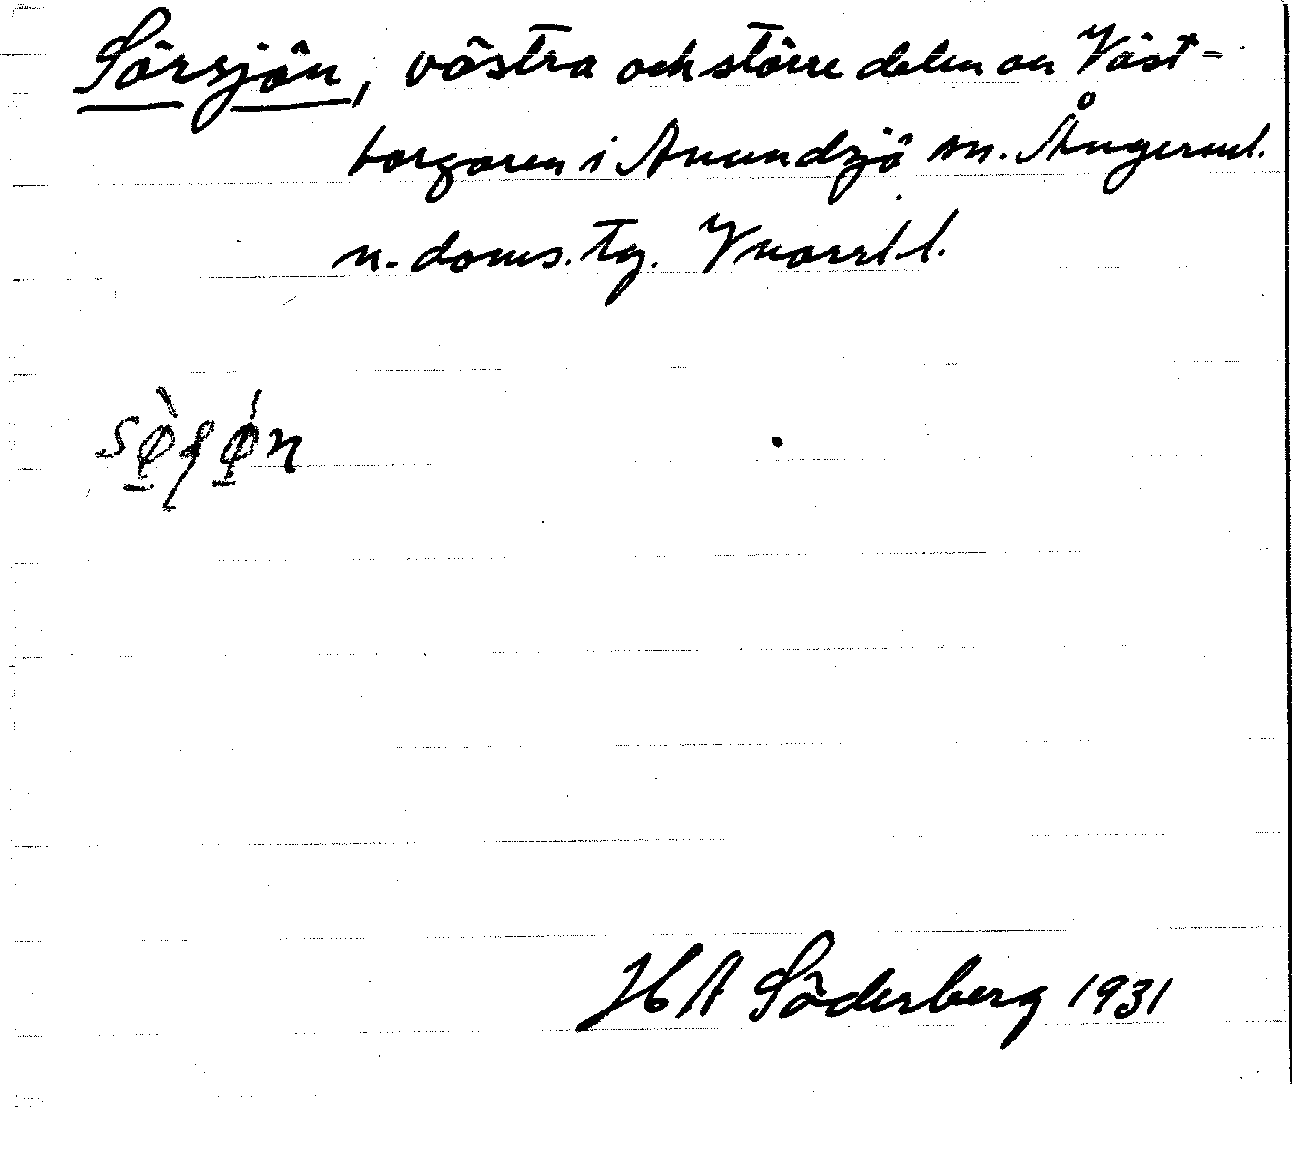 Sörsjön, västra och större delen av Väst-
torgaren i Anundsjö sn. Ångerml.
n. doms. tg. Vnorrl. l.
H A Söderberg 1931